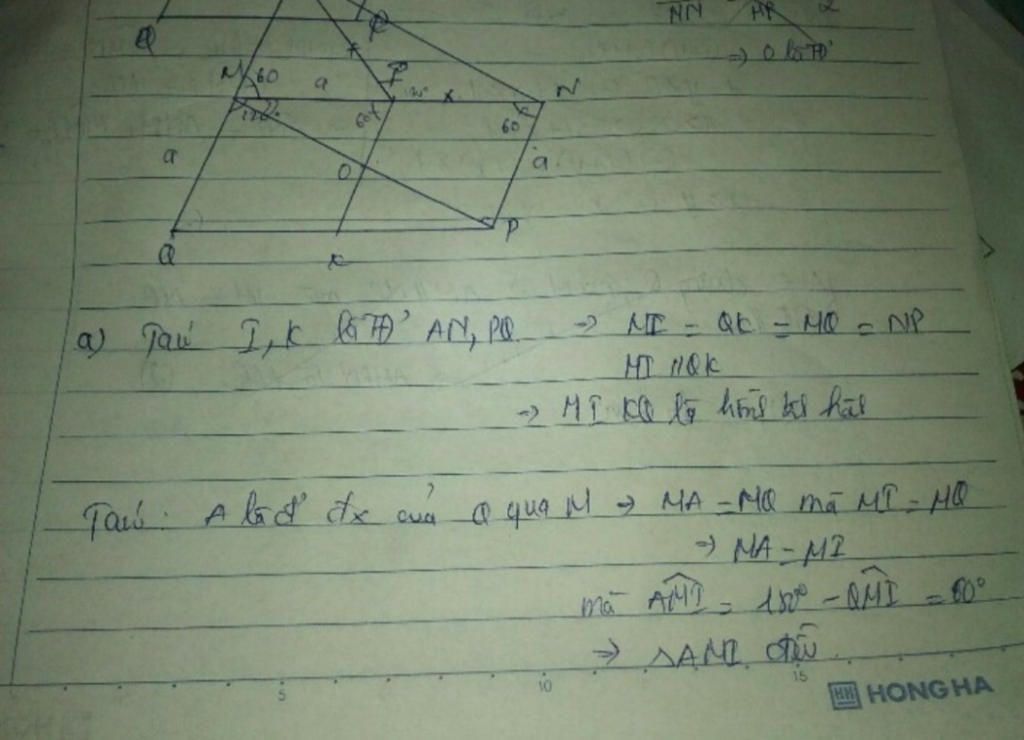 Q
R
NN
AP
2
⇒ O là TĐ'
M 60
a
I
x
N
120°
60
60
a
O
a
Q
K
P
a) Ta có I, K là TĐ' AN, PQ ⇒ MI = QK = MQ = NP
MI // QK
⇒ MI KQ là
Ta có: A là đ' đx của Q qua M → MA = MQ mà MI = MQ
⇒ MA = MI
mà AMI = 180° - QMI = 60°
⇒ △AMI đều
5
10
15
HH HONG HA